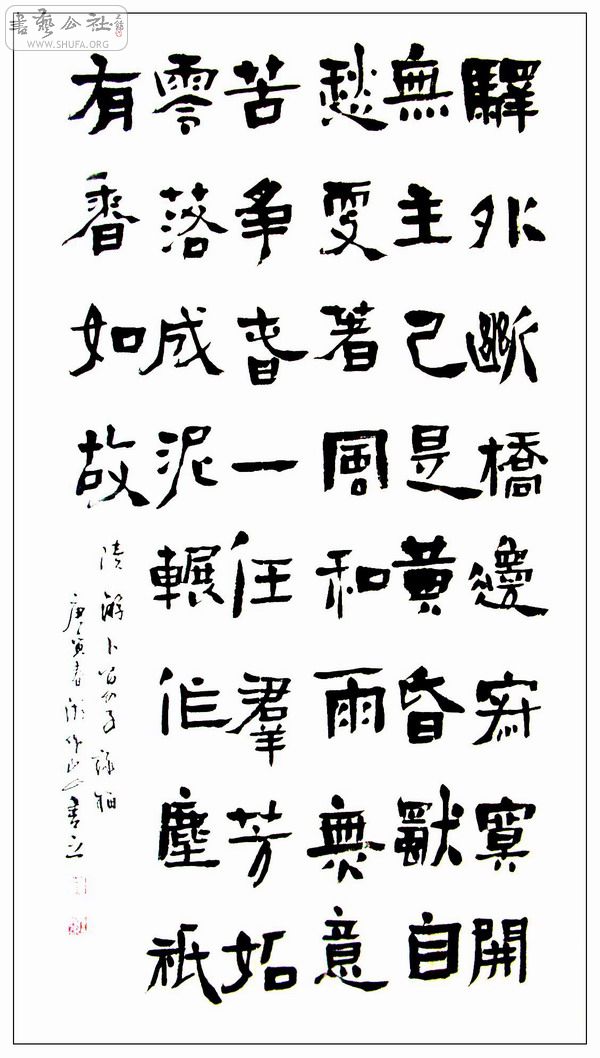 書藝公社
WWW.SHUFA.ORG
驛外斷橋邊寂寞開
無主已是黃昏獨自
愁更著風和雨無意
苦爭春一任羣芳妬
零落成泥輾作塵祇
有香如故
陸游卜算子詠梅
庚寅春 書之